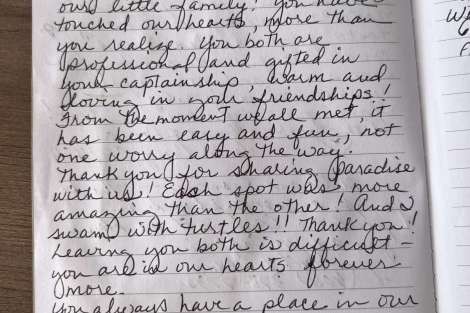 our little family! You have
touched our hearts, more than
you realize. You both are
professional and gifted in
your captainship, warm and
loving in your friendships!
From the moment we all met, it
has been easy and fun, not
one worry along the way.
Thank you for sharing paradise
with us! Each spot was more
amazing than the other! And I
swam with turtles!! Thank you!
Leaving you both is difficult –
you are in our hearts forever
more.
You always have a place in our